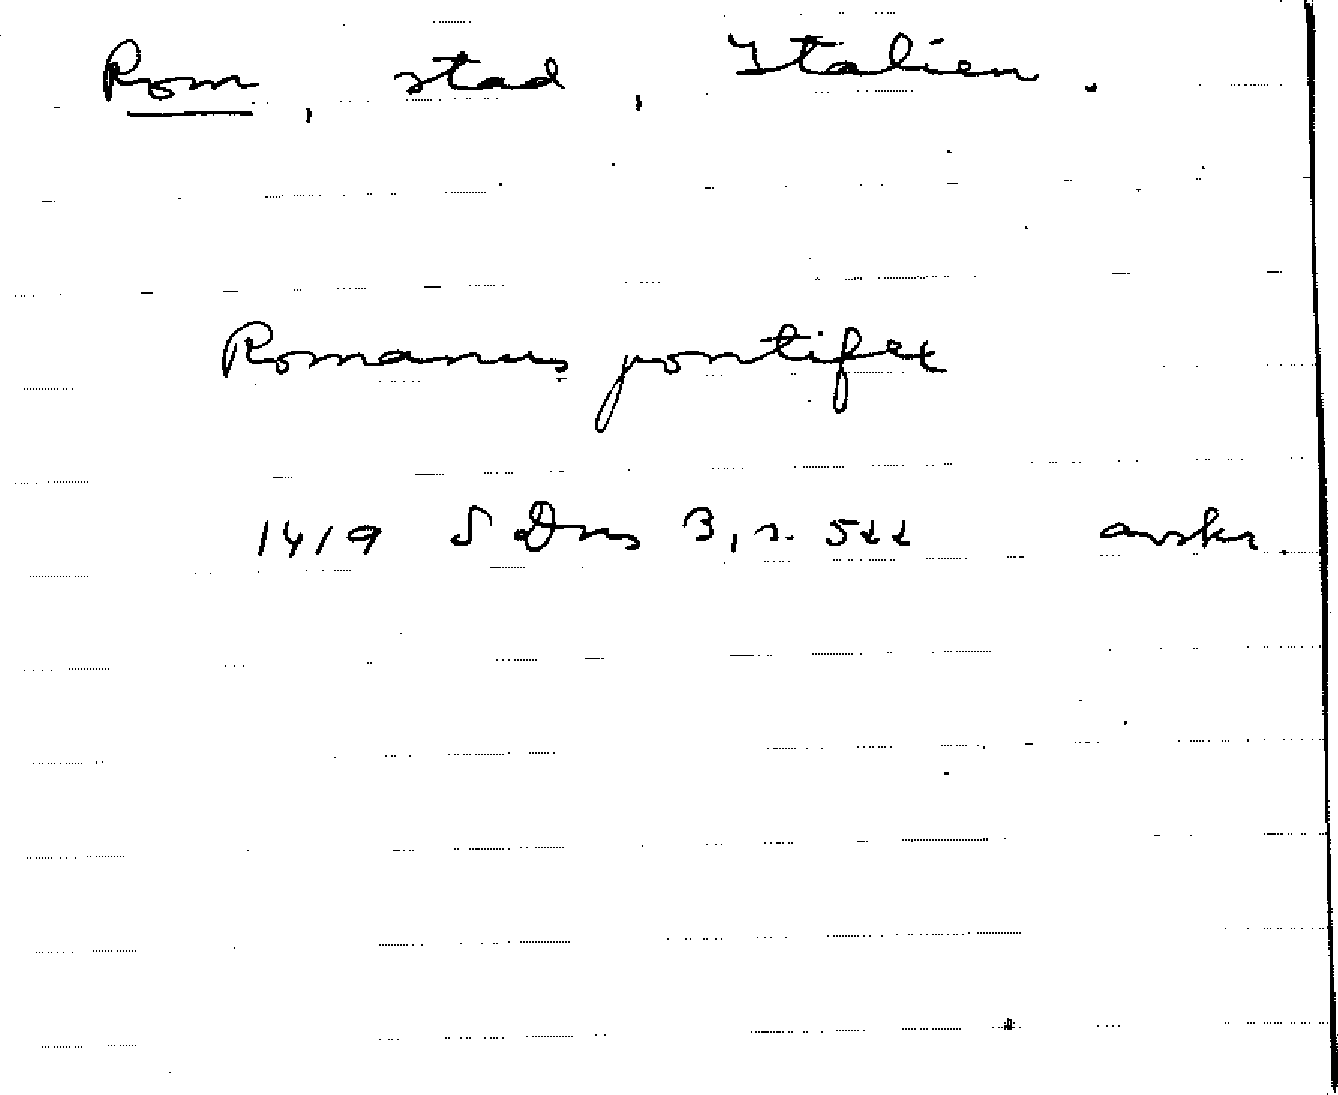 Rom, stad, Italien.
Romanus pontifex
1419 SDns 3, s. 522 avskr.